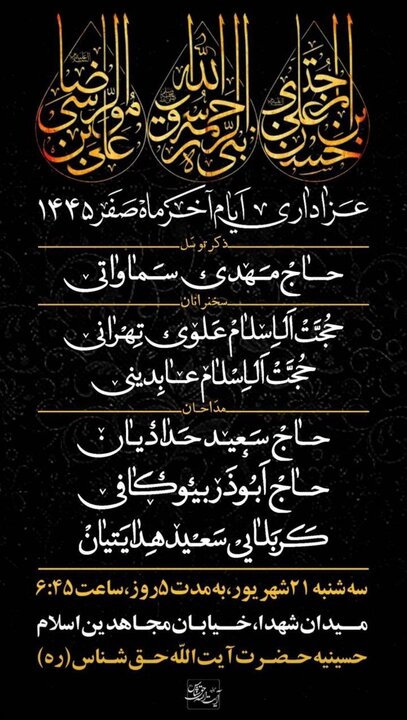 حسن بن علی المجتبی
نبی الرحمة رسول الله
علی بن موسی الرضا
عزاداری ایام آخر ماه صفر ۱۴۴۵
ذکر توسل
حاج مهدی سماواتی
سخنرانان
حجت الاسلام علوی تهرانی
حجت الاسلام عابدینی
مداحان
حاج سعید حدادیان
حاج ابوذر بیوکافی
کربلایی سعید هدایتیان
سه شنبه ۲۱ شهریور، به مدت ۵ روز، ساعت ۶:۴۵
میدان شهدا، خیابان مجاهدین اسلام
حسینیه حضرت آیت الله حق شناس (ره)